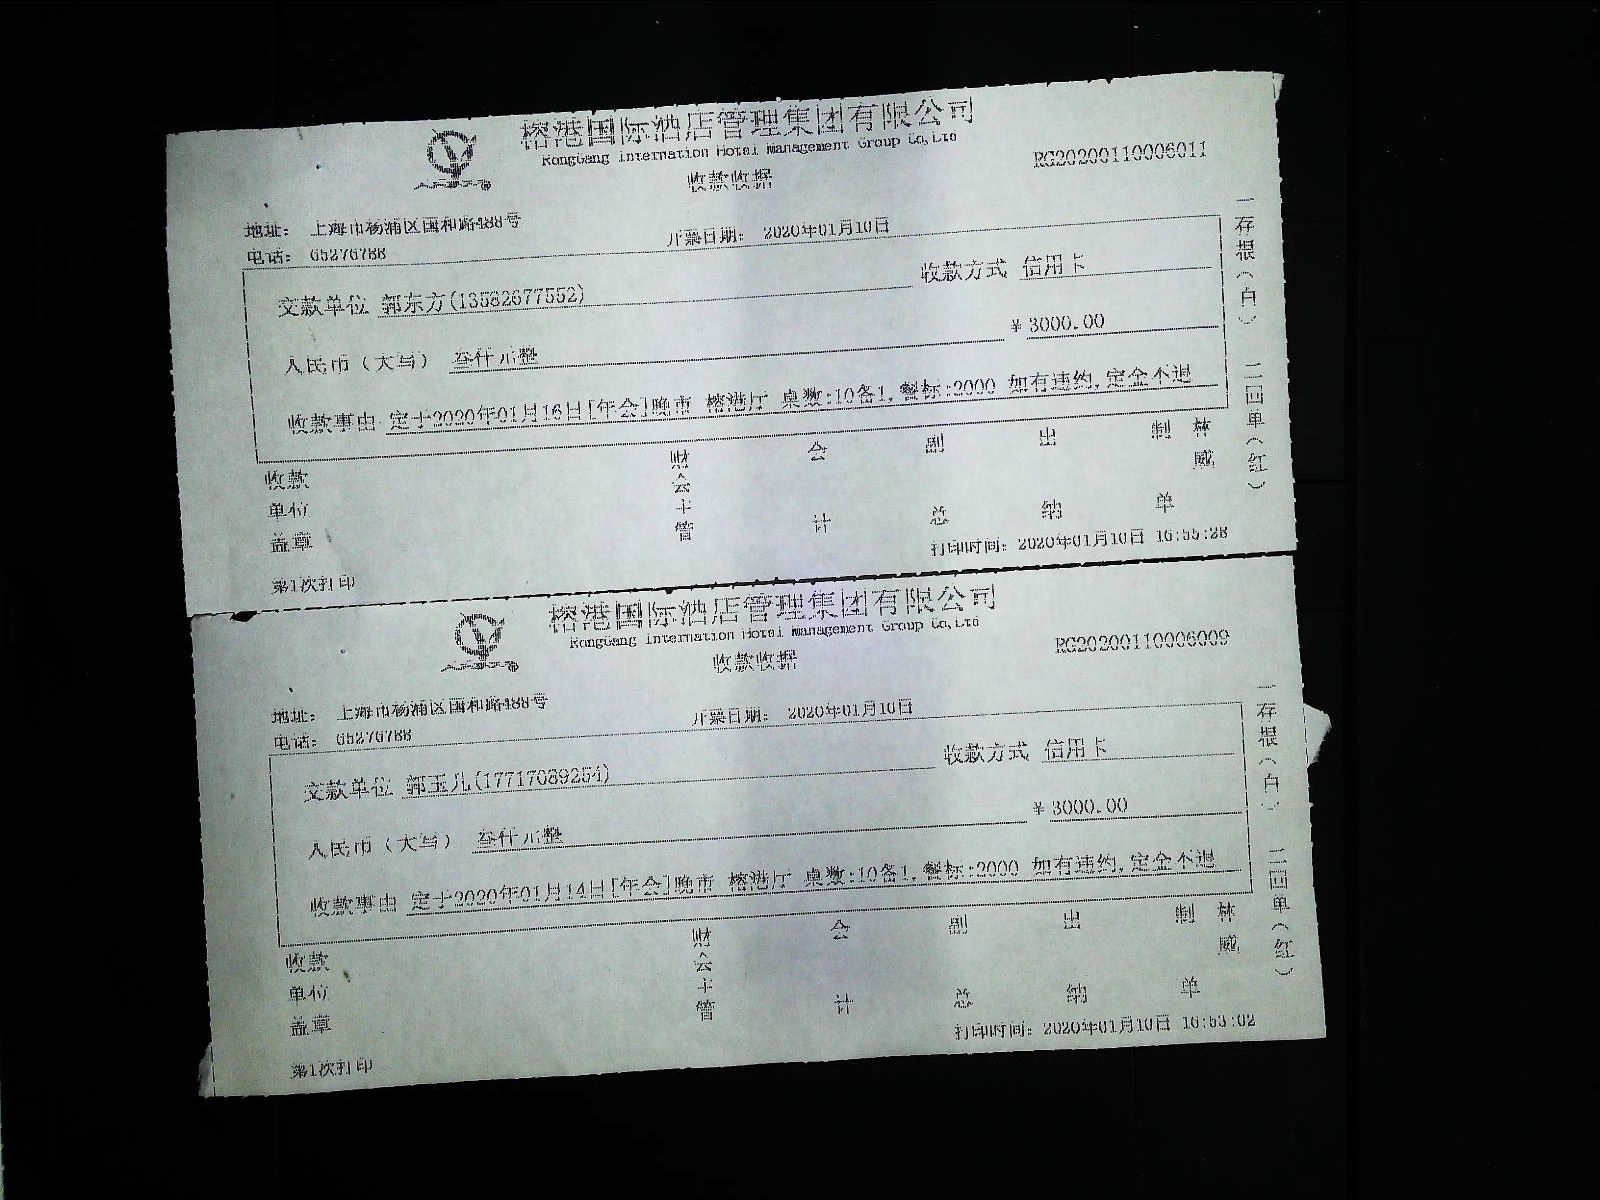 榕港国际酒店管理集团有限公司
RongGang Internation Hotel Management Group Co,Ltd
RG20200110006011
收款收据
地址： 上海市杨浦区国和路488号
电话： 65276788
开票日期： 2020年01月10日
交款单位 郭东方(13582677552)
收款方式 信用卡
人民币（大写） 叁仟元整
¥ 3000.00
收款事由 定于2020年01月16日[年会]晚市 榕港厅 桌数:10备1,餐标:2000 如有违约,定金不退
收款单位盖章
财会主管
会计
副总
出纳
制单
林威
打印时间：2020年01月10日 16:55:28
第1次打印
一存根（白） 二回单（红）
榕港国际酒店管理集团有限公司
RongGang Internation Hotel Management Group Co,Ltd
RG20200110006009
收款收据
地址： 上海市杨浦区国和路488号
电话： 65276788
开票日期： 2020年01月10日
交款单位 郭玉儿(17717089254)
收款方式 信用卡
人民币（大写） 叁仟元整
¥ 3000.00
收款事由 定于2020年01月14日[年会]晚市 榕港厅 桌数:10备1,餐标:2000 如有违约,定金不退
收款单位盖章
财会主管
会计
副总
出纳
制单
林威
打印时间：2020年01月10日 16:53:02
第1次打印
一存根（白） 二回单（红）